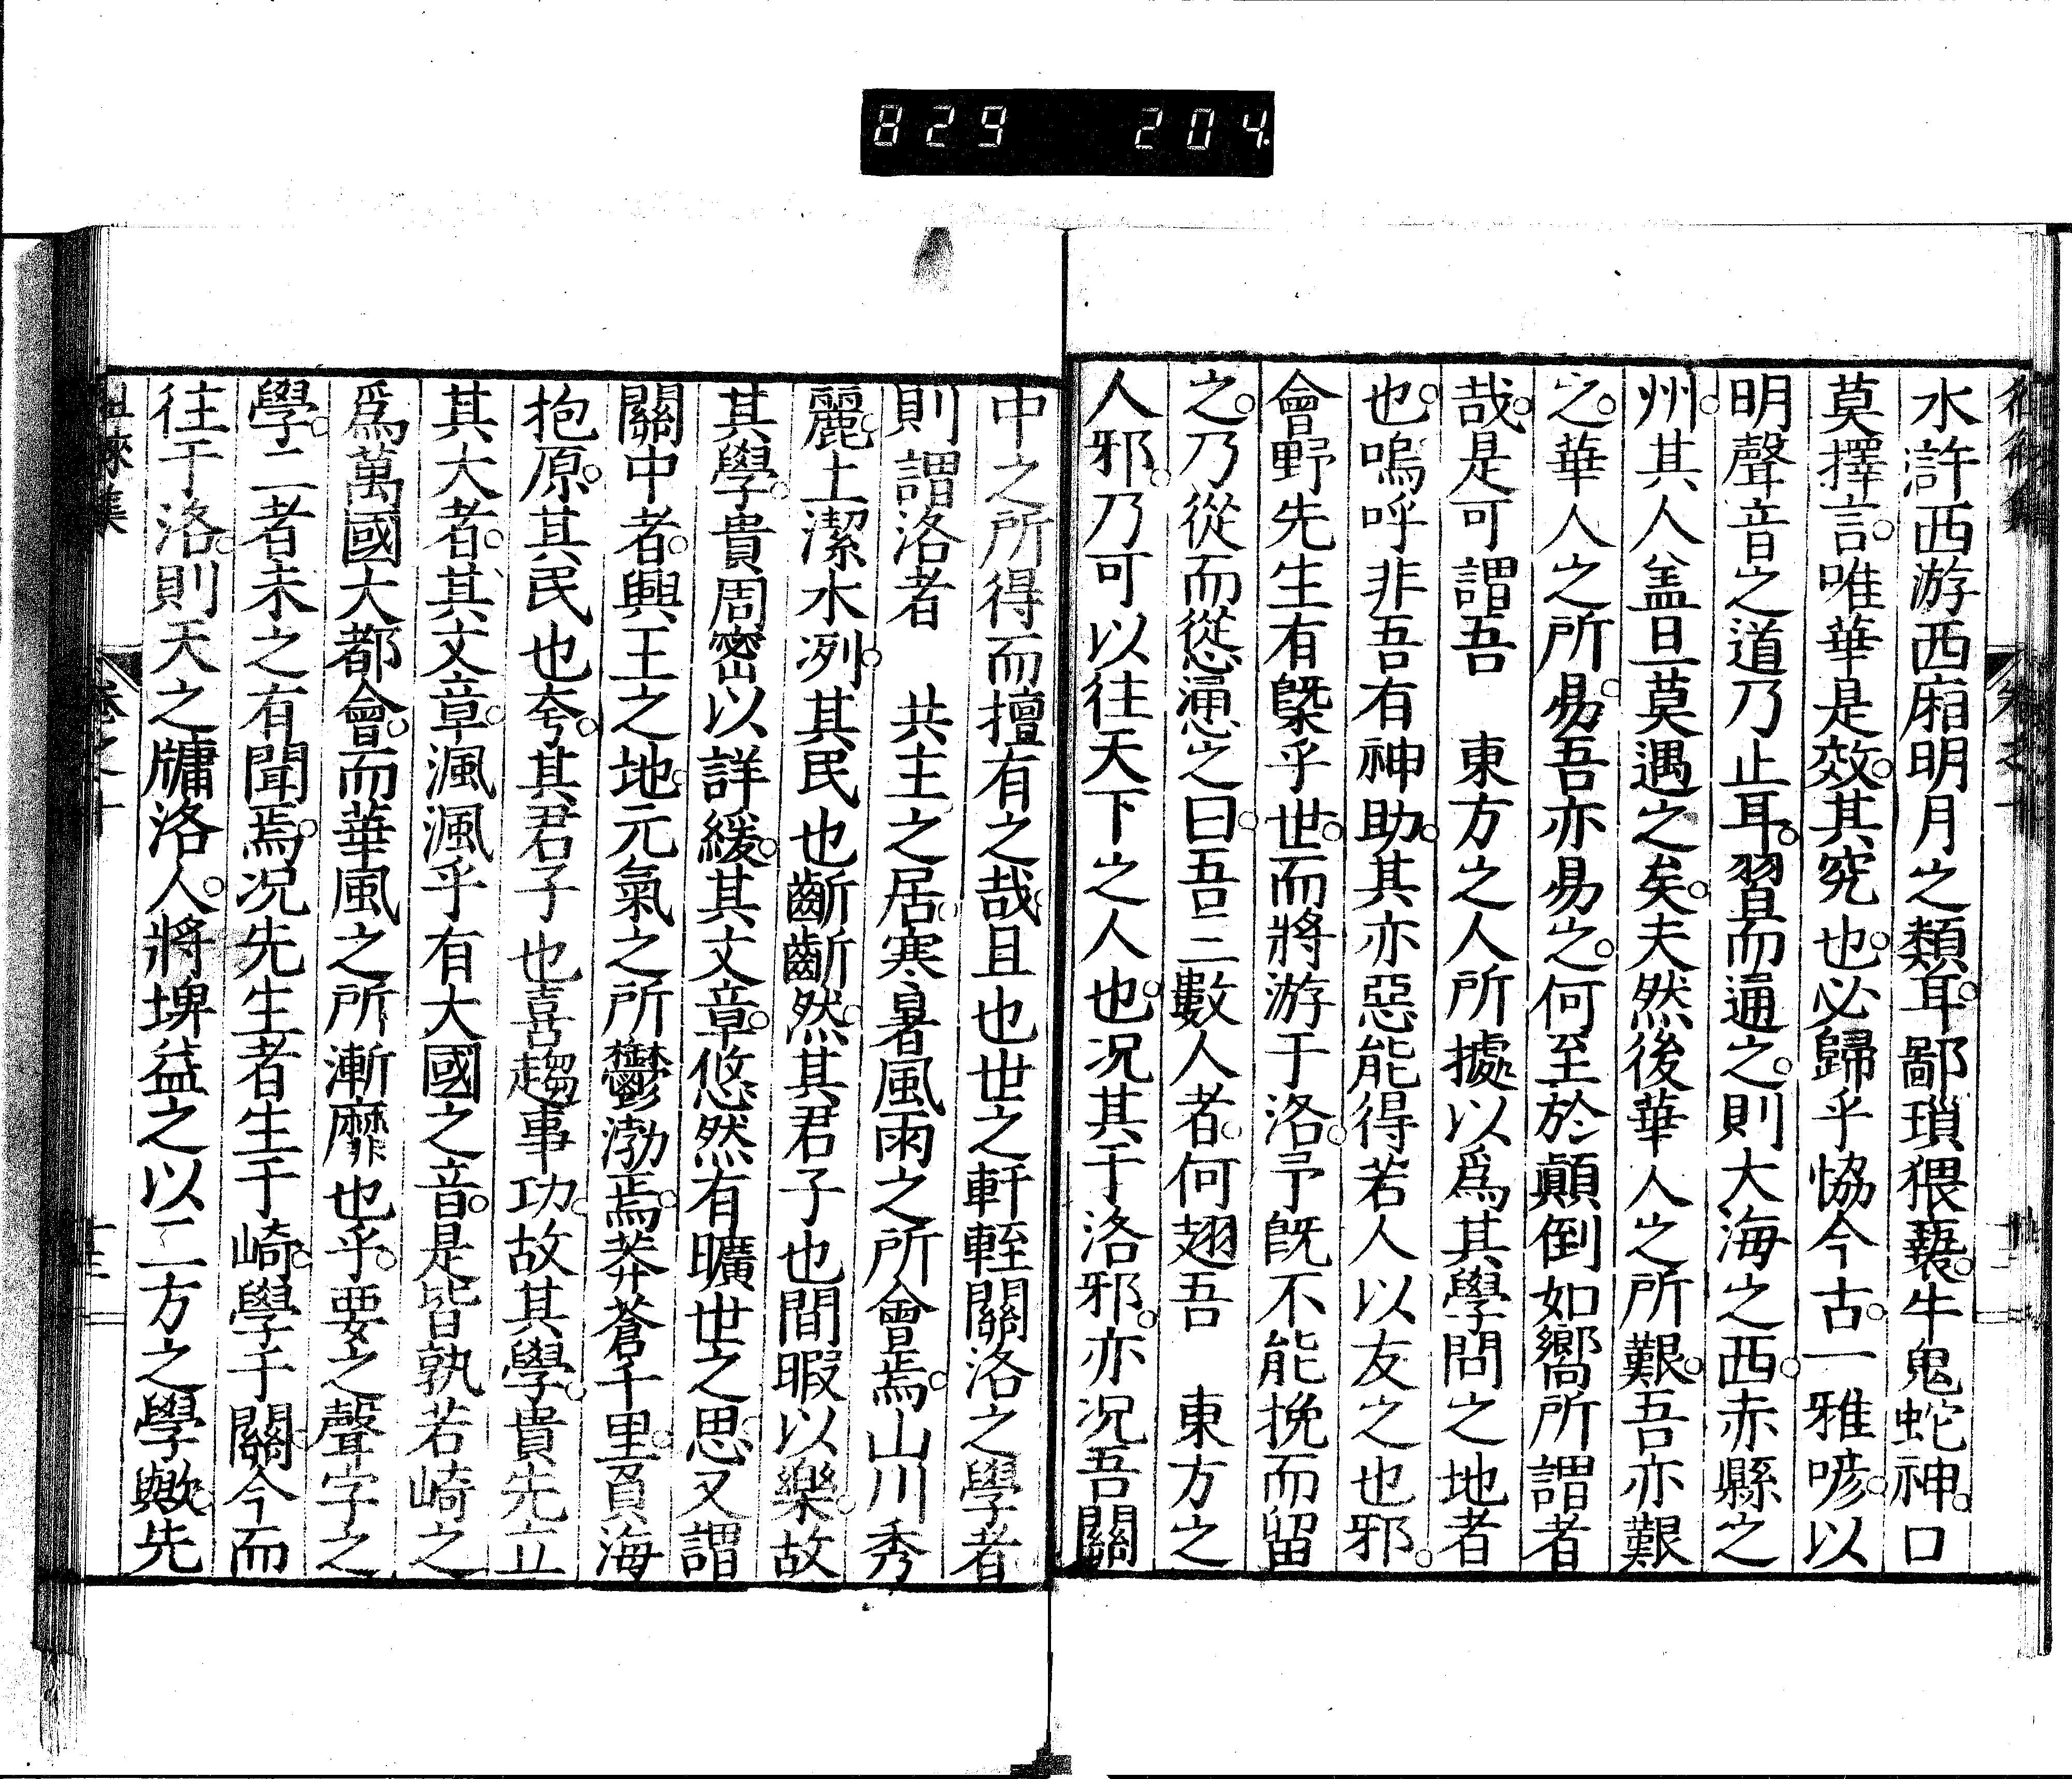 829 204
水滸西游西廂明月之類耳。鄙瑣猥䙝。牛鬼蛇神。口
莫擇言。唯華是效。其究也。必歸乎恊今古。一雅喭。以
明聲音之道乃止耳。習而通之。則大海之西。赤縣之
州。其人盖旦莫遇之矣。夫然後華人之所艱。吾亦艱
之。華人之所易。吾亦易之。何至於顛倒如嚮所謂者
哉。是可謂吾 東方之人所據以爲其學問之地者
也。嗚呼非吾有神助。其亦惡能得若人以友之也邪。
會野先生有槩乎世。而將游于洛。予旣不能挽而留
之。乃從而慫慂之。曰。吾二三數人者。何翅吾 東方之
人邪。乃可以往天下之人也。况其于洛邪。亦况吾關
中之所得而擅有之哉。且也世之軒輊關洛之學者
則謂洛者 共主之居。寒暑風雨之所會焉。山川秀
麗。土潔水冽。其民也齗齗然。其君子也閒暇以樂。故
其學。貴周密以詳緩。其文章。悠然有曠世之思。又謂
關中者。輿王之地。元氣之所鬱渤焉。莽蒼千里。負海
抱原。其民也夸。其君子也喜趨事功。故其學。貴先立
其大者。其文章。渢渢乎有大國之音。是皆孰若崎之
爲萬國大都會。而華風之所漸靡也乎。要之聲字之
學。二者未之有聞焉。况先生者生于崎。學于關。今而
往于洛。則天之牗洛人。將埤益之以二方之學歟。先
徂徠集 卷之十 十三